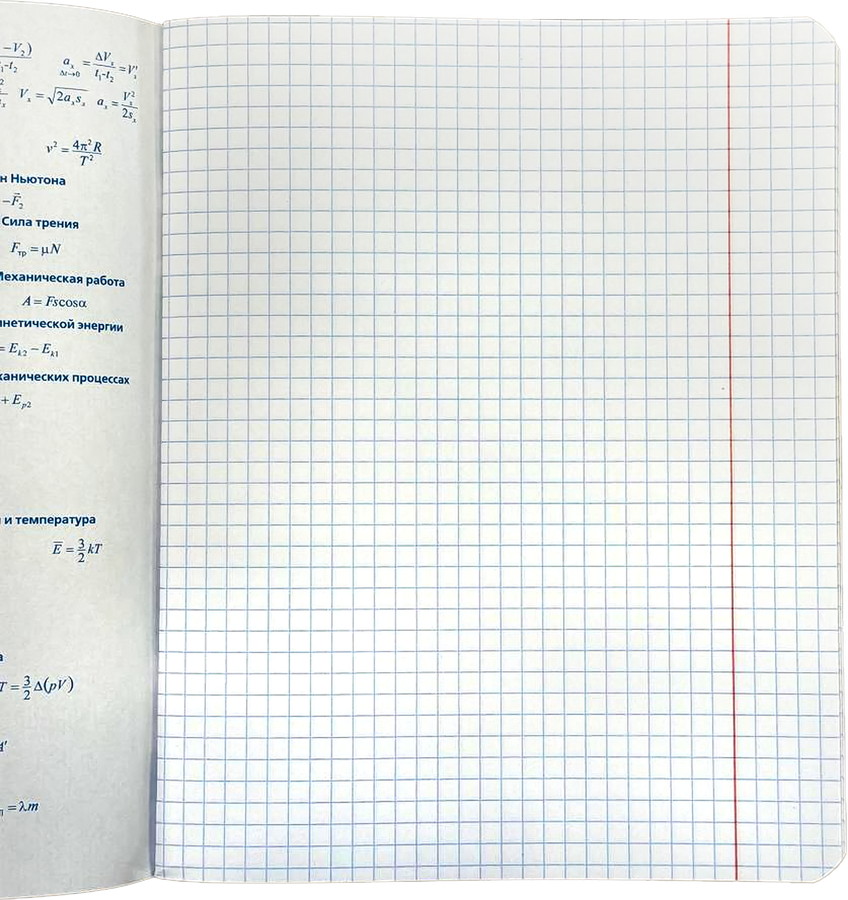 –V₂) / t₁-t₂   aₓ (Δt→0) = ΔVₓ / t₁-t₂ = V'ₓ
Vₓ = √2aₓsₓ   aₓ = V²ₓ / 2sₓ
v² = 4π²R / T²
н Ньютона
–F⃗₂
Сила трения
Fтр = μN
еханическая работа
A = Fscosα
нетической энергии
= Eₖ₂ – Eₖ₁
ханических процессах
+ Eₚ₂
и температура
E̅ = 3/2 kT
а
T = 3/2 Δ(pV)
= λm